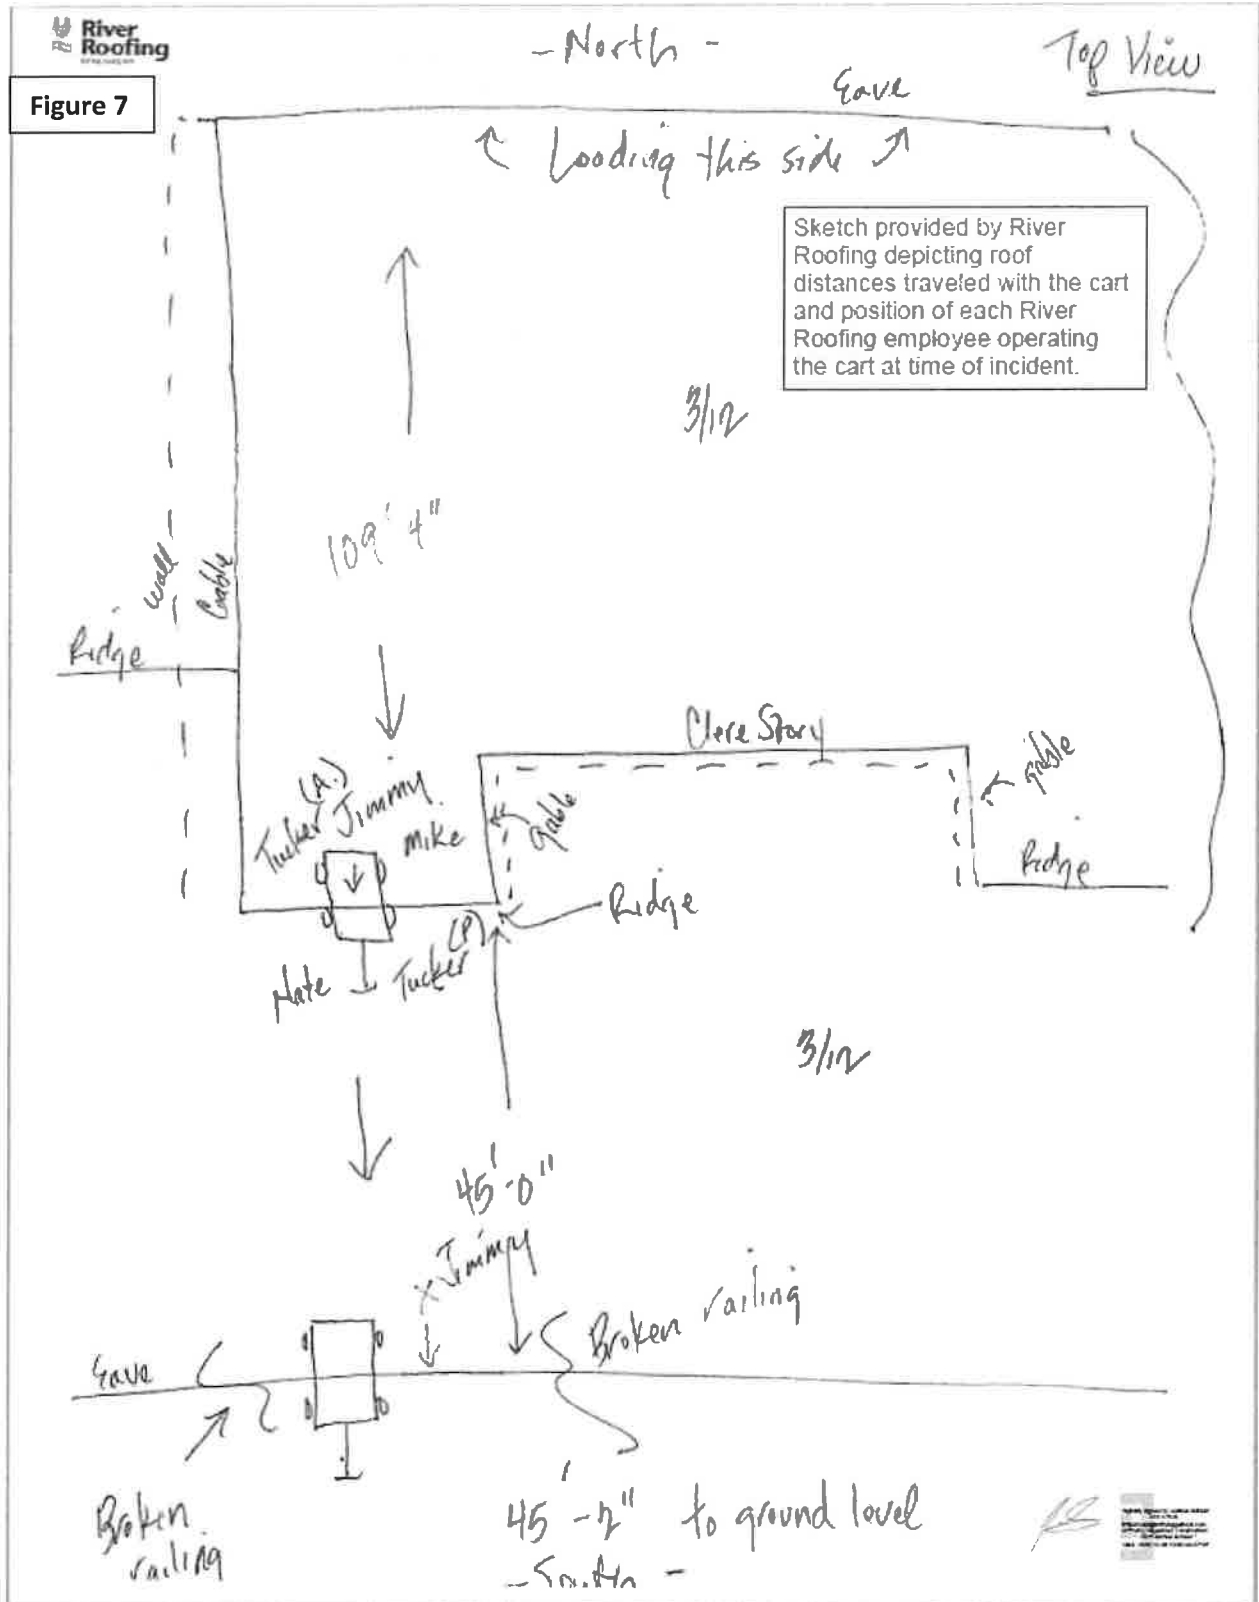 River
Roofing
- North -
Top View
Figure 7
Eave
Loading this side
Sketch provided by River
Roofing depicting roof
distances traveled with the cart
and position of each River
Roofing employee operating
the cart at time of incident.
3/12
109' 4"
wall
Gable
Ridge
Clere Story
gable
(A.)
Tucker Jimmy
Mike
gable
Ridge
Ridge
(P)
Nate
Tucker
3/12
45'-0"
x Jimmy
Broken railing
Eave
Broken
railing
45'-2" to ground level
- South -